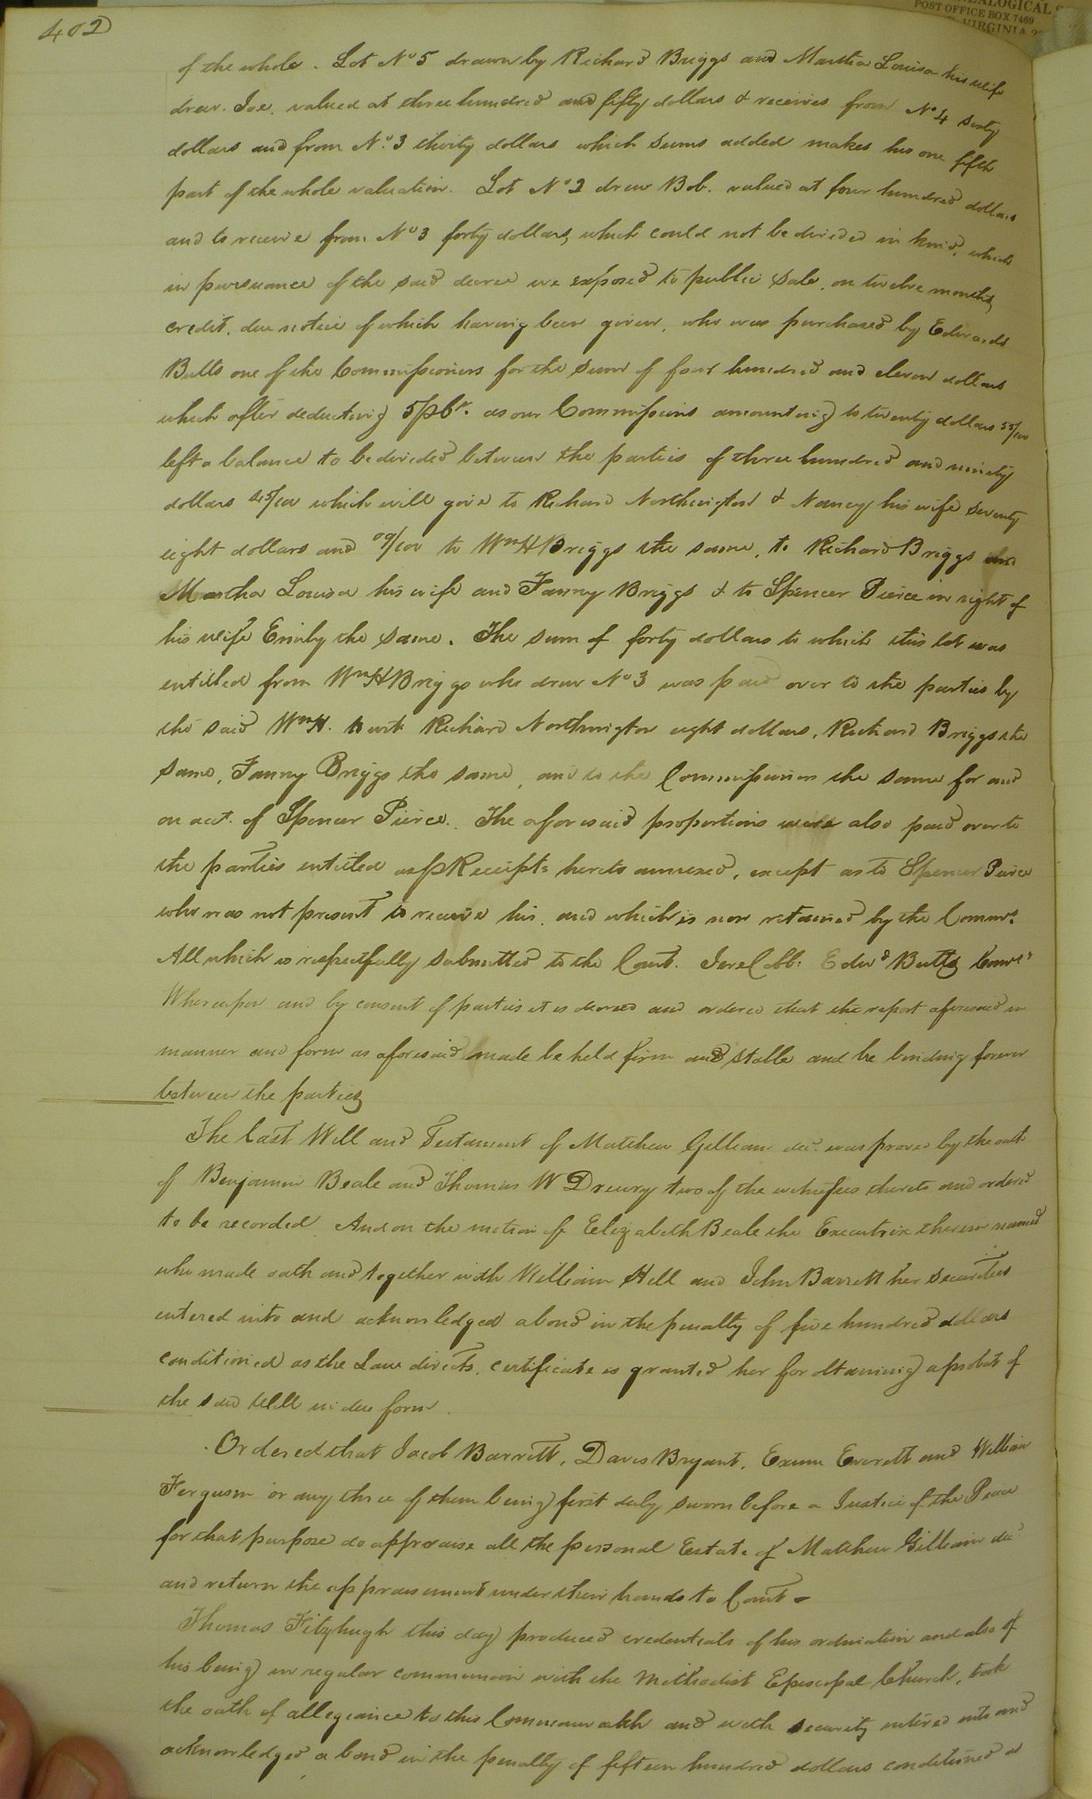 402
GENEALOGICAL S
POST OFFICE BOX 7469
VIRGINIA 2
of the whole. Lot No 5 drawn by Richard Briggs and Martha Louisa his wife
drew. Joe. valued at three hundred and fifty dollars & receives from No 4 sixty
dollars and from No. 3 thirty dollars which sums added makes his one fifth
part of the whole valuation. Lot No 2 drew Bob. valued at four hundred dollars
and to receive from No 3 forty dollars, which could not be divided in kind, which
in pursuance of the said decree we exposed to public sale, on twelve months
credit, due notice of which having been given, who was purchased by Edwards
Butts one of the Commissioners for the sum of four hundred and eleven dollars
which after deducting 5 p Ct. as our Commissions amounting to twenty dollars 55/100
left a balance to be divided between the parties of three hundred and ninety
dollars 45/100 which will give to Richard Northington & Nancy his wife seventy
eight dollars and 09/100 to Wm H Briggs the same, to Richard Briggs and
Martha Louisa his wife and Fanny Briggs & to Spencer Pierce in right of
his wife Emily the same. The sum of forty dollars to which this lot was
entitled from Wm H Briggs who drew No 3 was paid over to the parties by
the said Wm H. to wit Richard Northington eight dollars, Richard Briggs the
same, Fanny Briggs the same, and to the Commissioners the same for and
on acct. of Spencer Pierce. The aforesaid proportions were also paid over to
the parties entitled as p Receipts hereto annexed, except as to Spencer Peirce
who was not present to receive his, and which is now retained by the Commrs.
All which is respectfully submitted to the Court. Jere Cobb. Edwd Butts Comrs
Whereupon and by consent of parties it is decreed and ordered that the report aforesaid in
manner and form as aforesaid made be held firm and stable and be binding forever
between the parties
The last Will and Testament of Matthew Gilliam decd. was proved by the oath
of Benjamin Beale and Thomas W Drewry two of the witnesses thereto and ordered
to be recorded And on the motion of Elizabeth Beale the Executrix therein named
who made oath and together with William Hill and John Barrett her securities
entered into and acknowledged a bond in the penalty of five hundred dollars
conditioned as the Law directs, certificate is granted her for obtaining a probat of
the said Will in due form.
Ordered that Jacob Barrett, Davis Bryant, Exum Everett and William
Ferguson or any three of them being first duly sworn before a Justice of the Peace
for that purpose do appraise all the personal Estate of Matthew Gilliam decd
and return the appraisement under their hands to Court
Thomas Fitzhugh this day produced credentials of his ordination and also of
his being in regular communion with the Methodist Episcopal Church, took
the oath of allegiance to this Commonwealth and with security entered into and
acknowledged a bond in the penalty of fifteen hundred dollars conditioned as